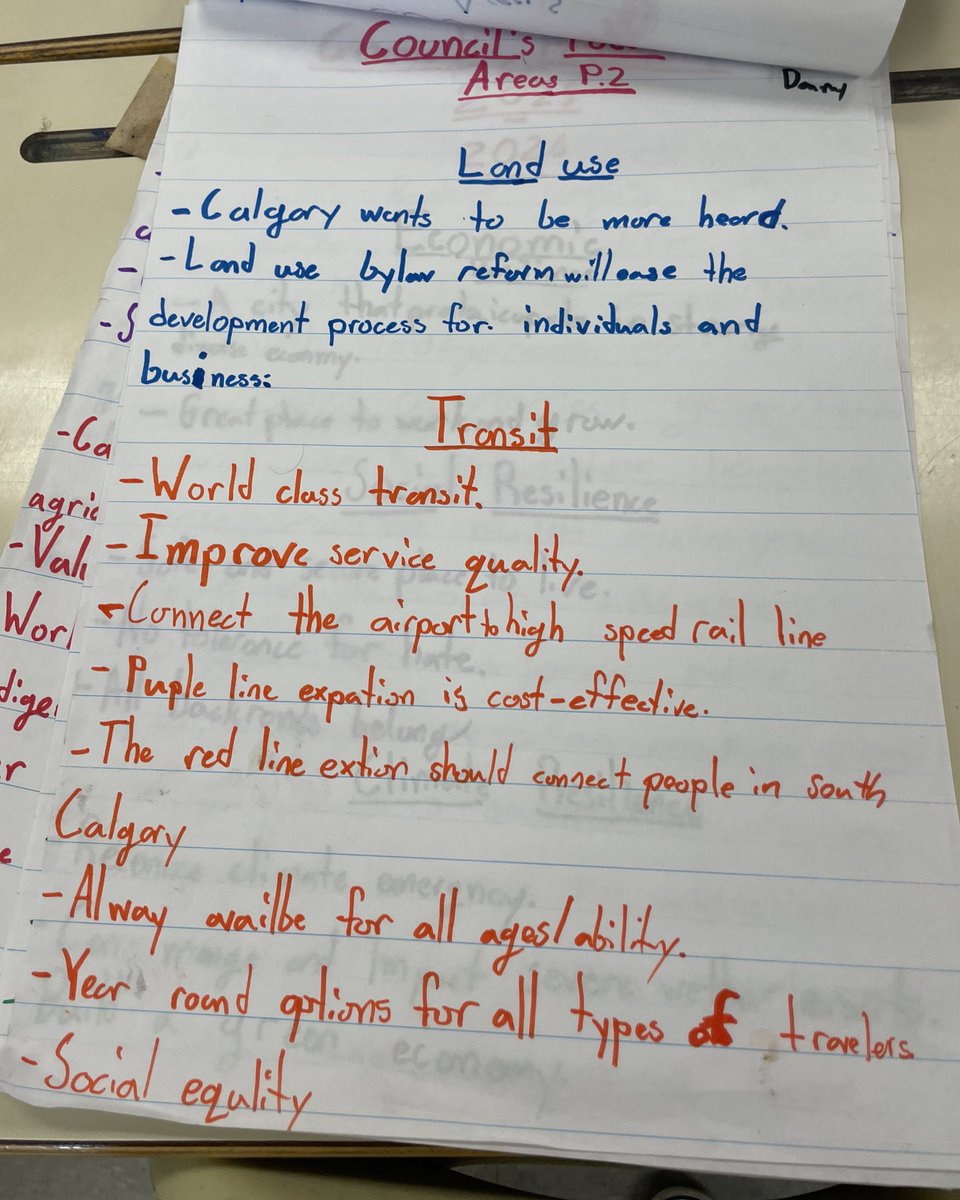 Council's
Areas P.2
Danny
Land use
- Calgary wants to be more heard.
- Land use bylaw reform will ease the
development process for individuals and
business:
Transit
- World class transit.
- Improve service quality.
- Connect the airport to high speed rail line
- Puple line expation is cost-effective.
- The red line extion should connect people in south
Calgary
- Alway availbe for all ages/ability.
- Year round options for all types of travelers
- Social equlity
- Ca
agric
- Val
Worl
dige